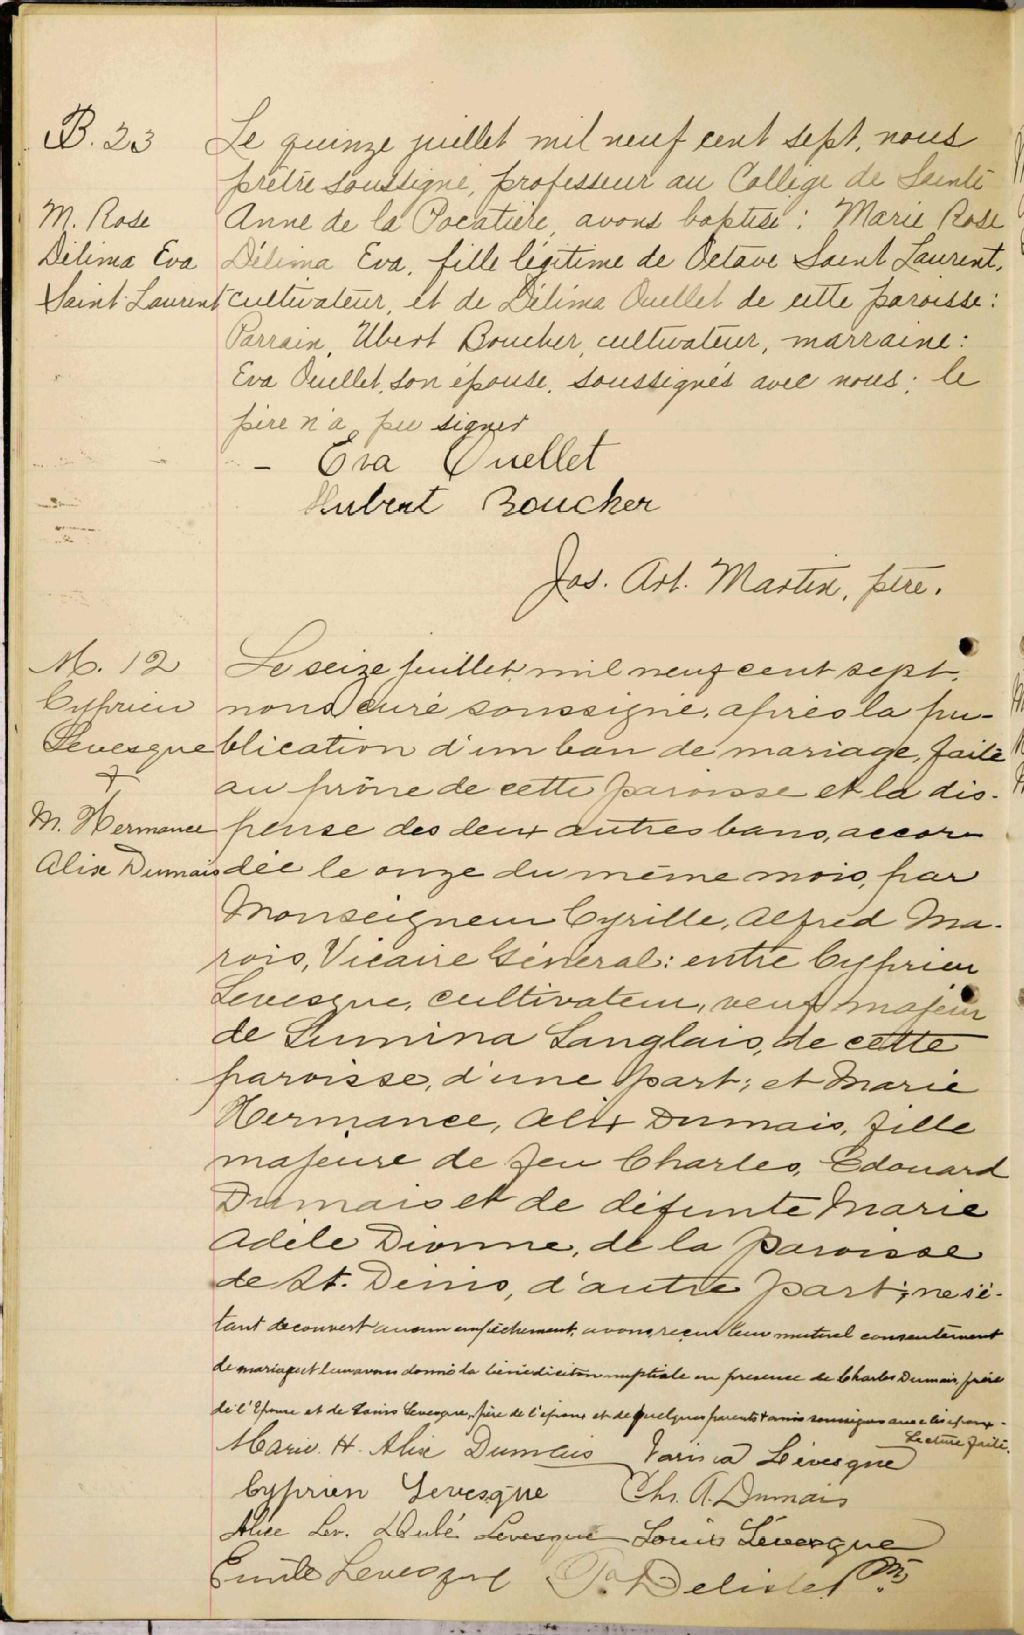 B. 23
M. Rose
Délima Eva
Saint Laurent
Le quinze juillet mil neuf cent sept, nous
prêtre soussigné, professeur au Collège de Sainte
Anne de la Pocatière, avons baptisé : Marie Rose
Délima Eva, fille légitime de Octave Saint Laurent,
cultivateur, et de Délima Ouellet de cette paroisse :
Parrain, Ubert Boucher, cultivateur, marraine :
Eva Ouellet, son épouse, soussignés avec nous ; le
père n'a pu signer
Eva Ouellet
Hubert Boucher
Jos. Art. Martin, ptre.
M. 12
Cyprien
Levesque
+
M. Hermance
Alix Dumais
Le seize juillet, mil neuf cent sept,
nous curé soussigné, après la pu-
blication d'un ban de mariage, faite
au prône de cette paroisse et la dis-
pense des deux autres bans, accor-
dée le onze du même mois, par
Monseigneur Cyrille, Alfred Ma-
rois, Vicaire Général : entre Cyprien
Levesque, cultivateur, veuf majeur
de Lumina Langlais, de cette
paroisse, d'une part ; et Marie
Hermance, Alix Dumais, fille
majeure de feu Charles, Edouard
Dumais et de défunte Marie
Adèle Dionne, de la paroisse
de St. Denis, d'autre part ; ne s'é-
tant decouvert aucun empêchement, avons reçu leur mutuel consentement
de mariage et leur avons donné la bénédiction nuptiale en presence de Charles Dumais, frère
de l'Epouse et de Louis Levesque, père de l'époux et de quelques parents + amis soussignés avec les époux.
Lecture faite.
Marie H. Alix Dumais Lévesque
Cyprien Levesque Ch. A. Dumais
Alice Lev. Levesque Louis Lévesque
Emile Levesque Delisle